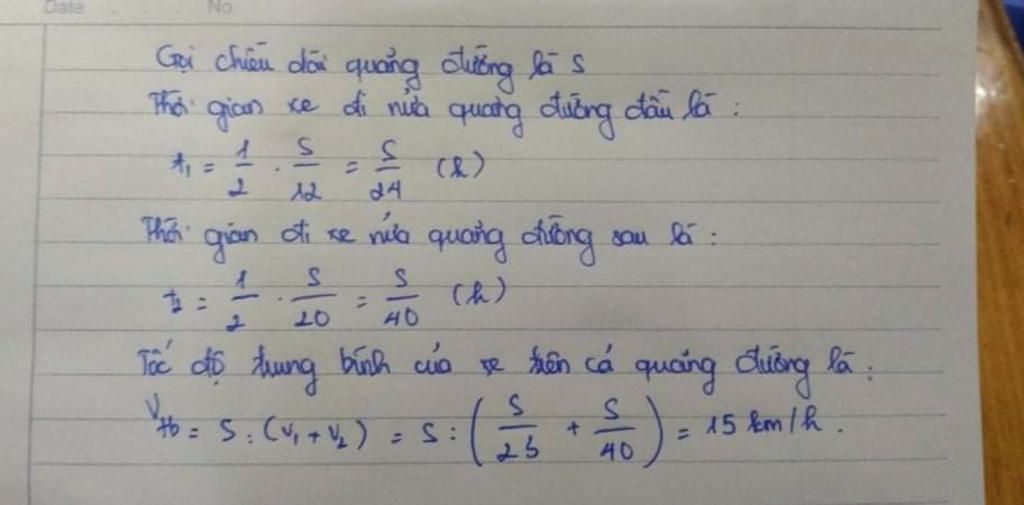 Date No.
Gọi chiều dài quảng đường là S
Thời gian xe đi nửa quảng đường đầu là :
t₁ = 1/2 . S/12 = S/24 (h)
Thời gian đi xe nửa quảng đường sau là :
t₂ = 1/2 . S/20 = S/40 (h)
Tốc độ trung bình của xe trên cả quảng đường là :
Vtb = S : (V₁ + V₂) = S : (S/25 + S/40) = 15 km/h .